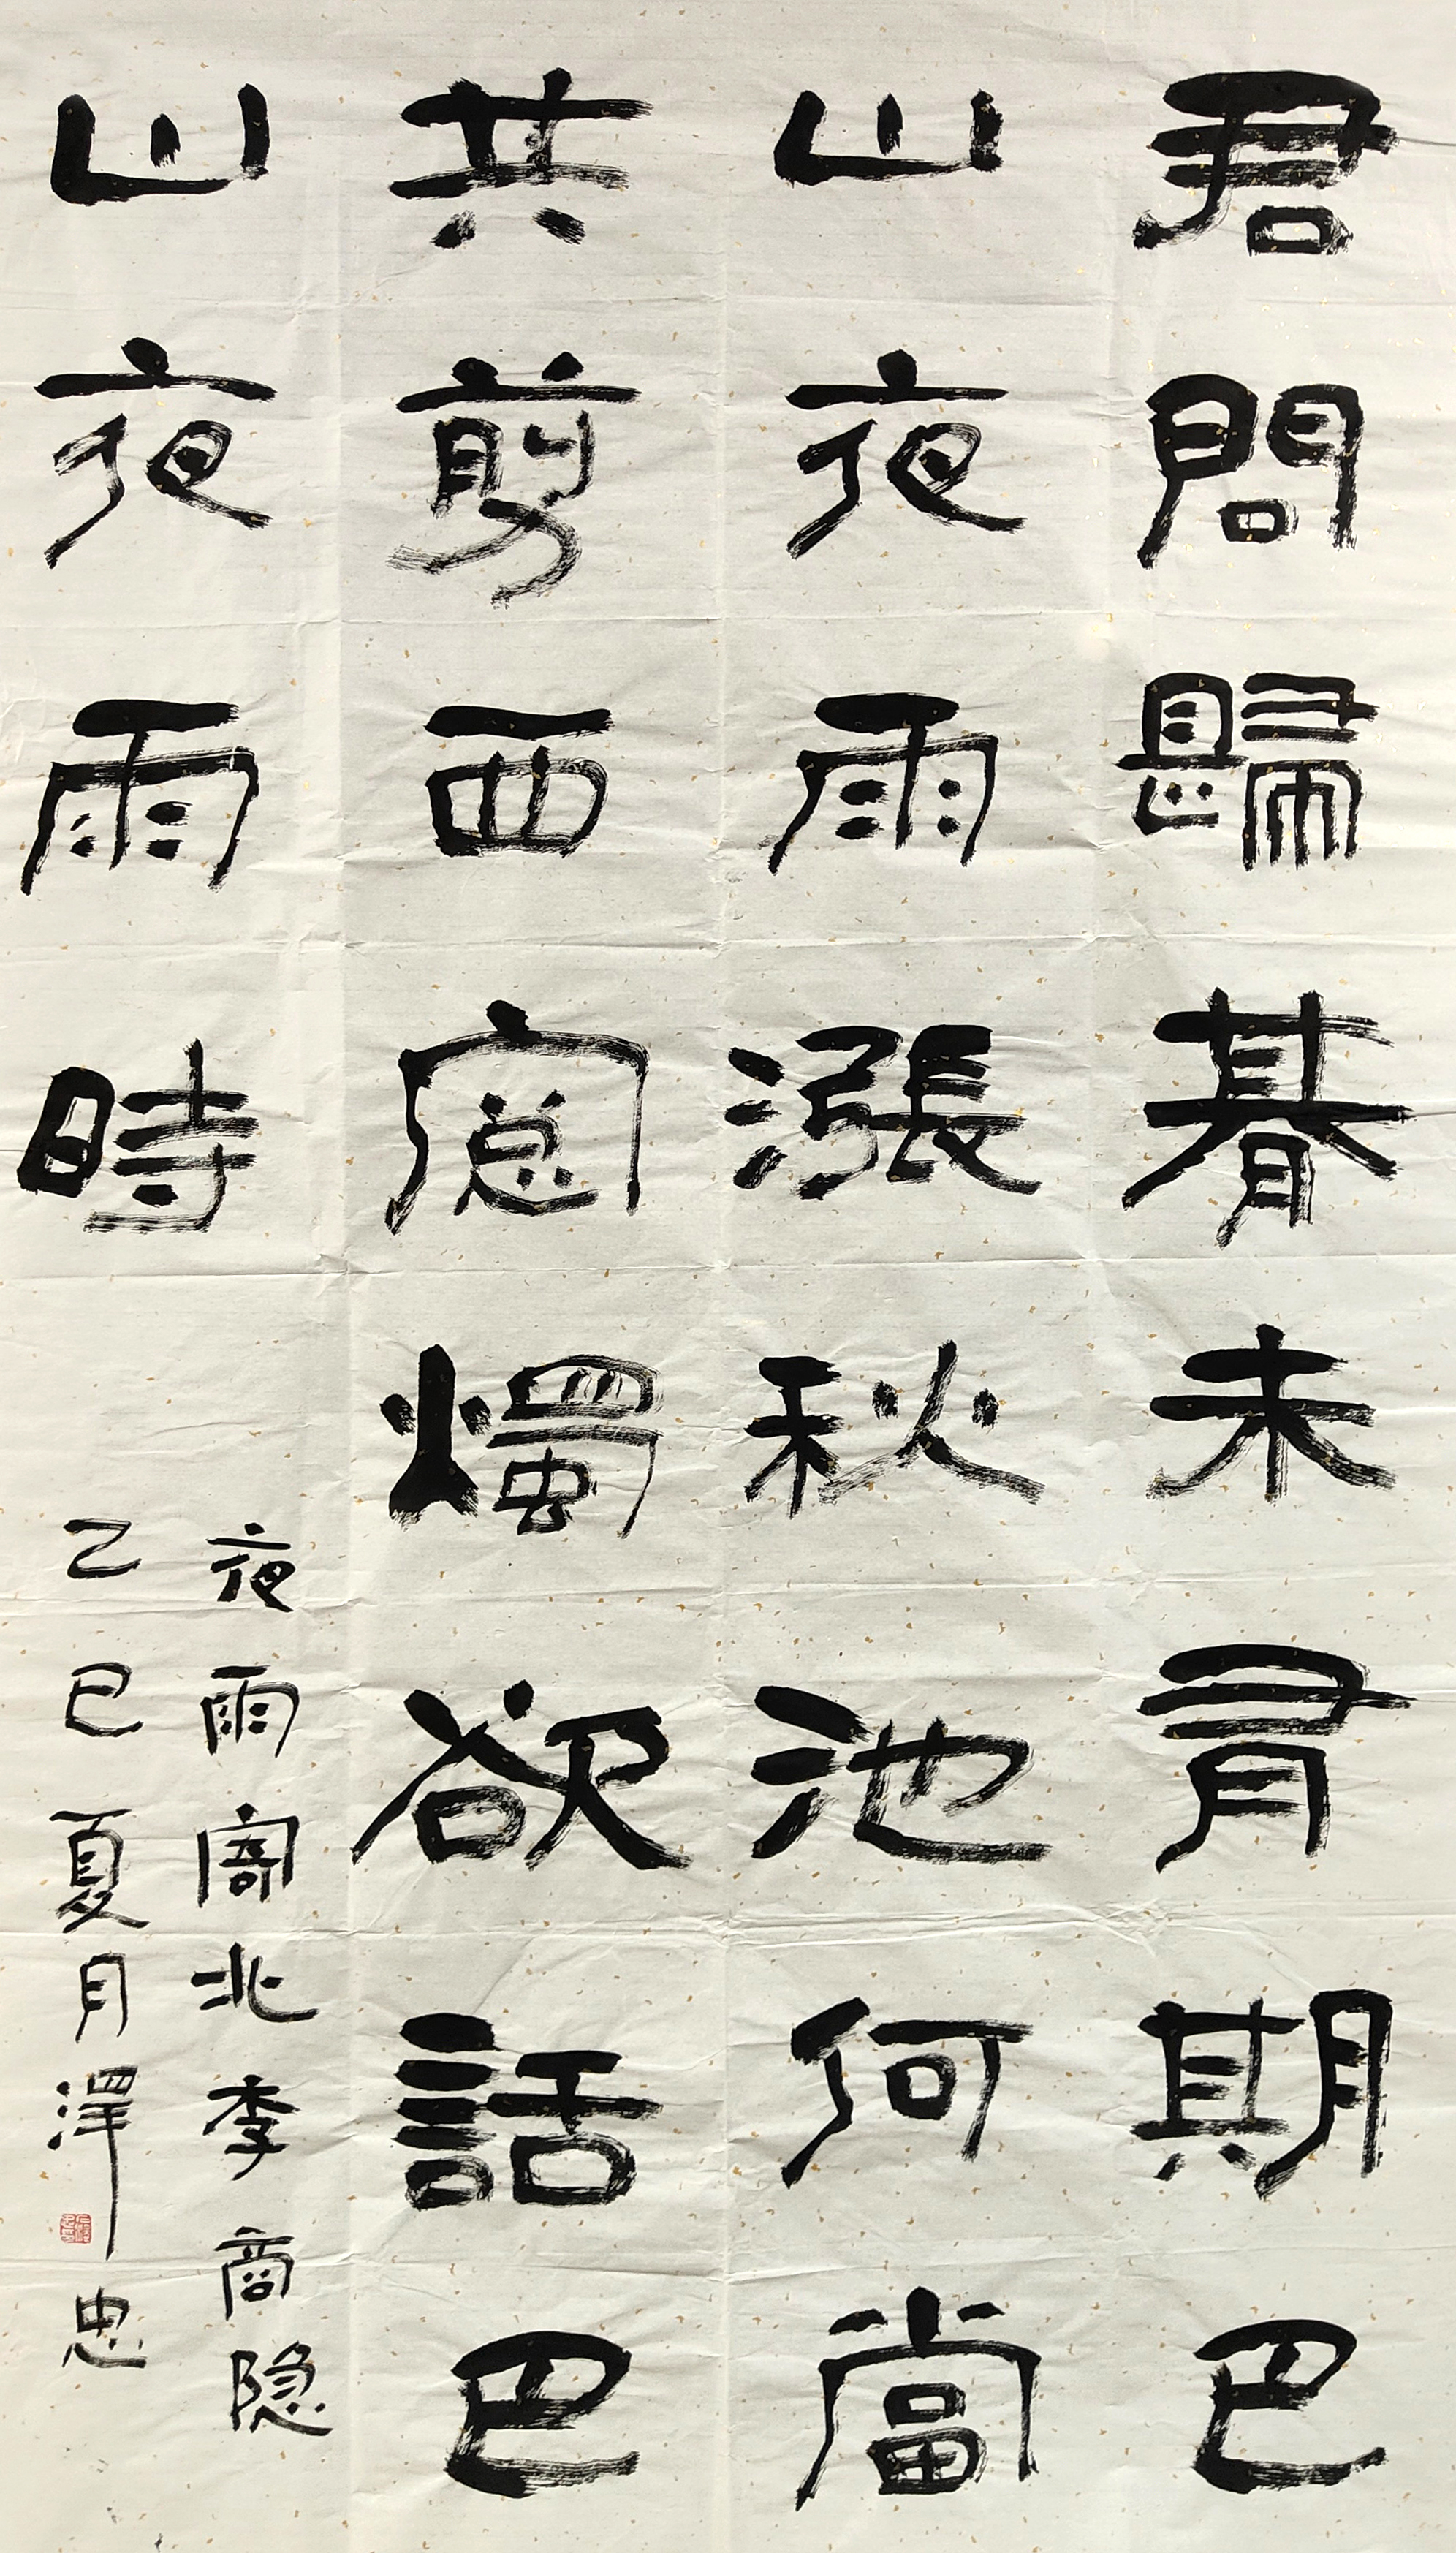 君問歸朞未有期巴
山夜雨漲秋池何當
共剪西窻燭欲話巴
山夜雨時
夜雨寄北李商隐
乙巳夏月澤忠